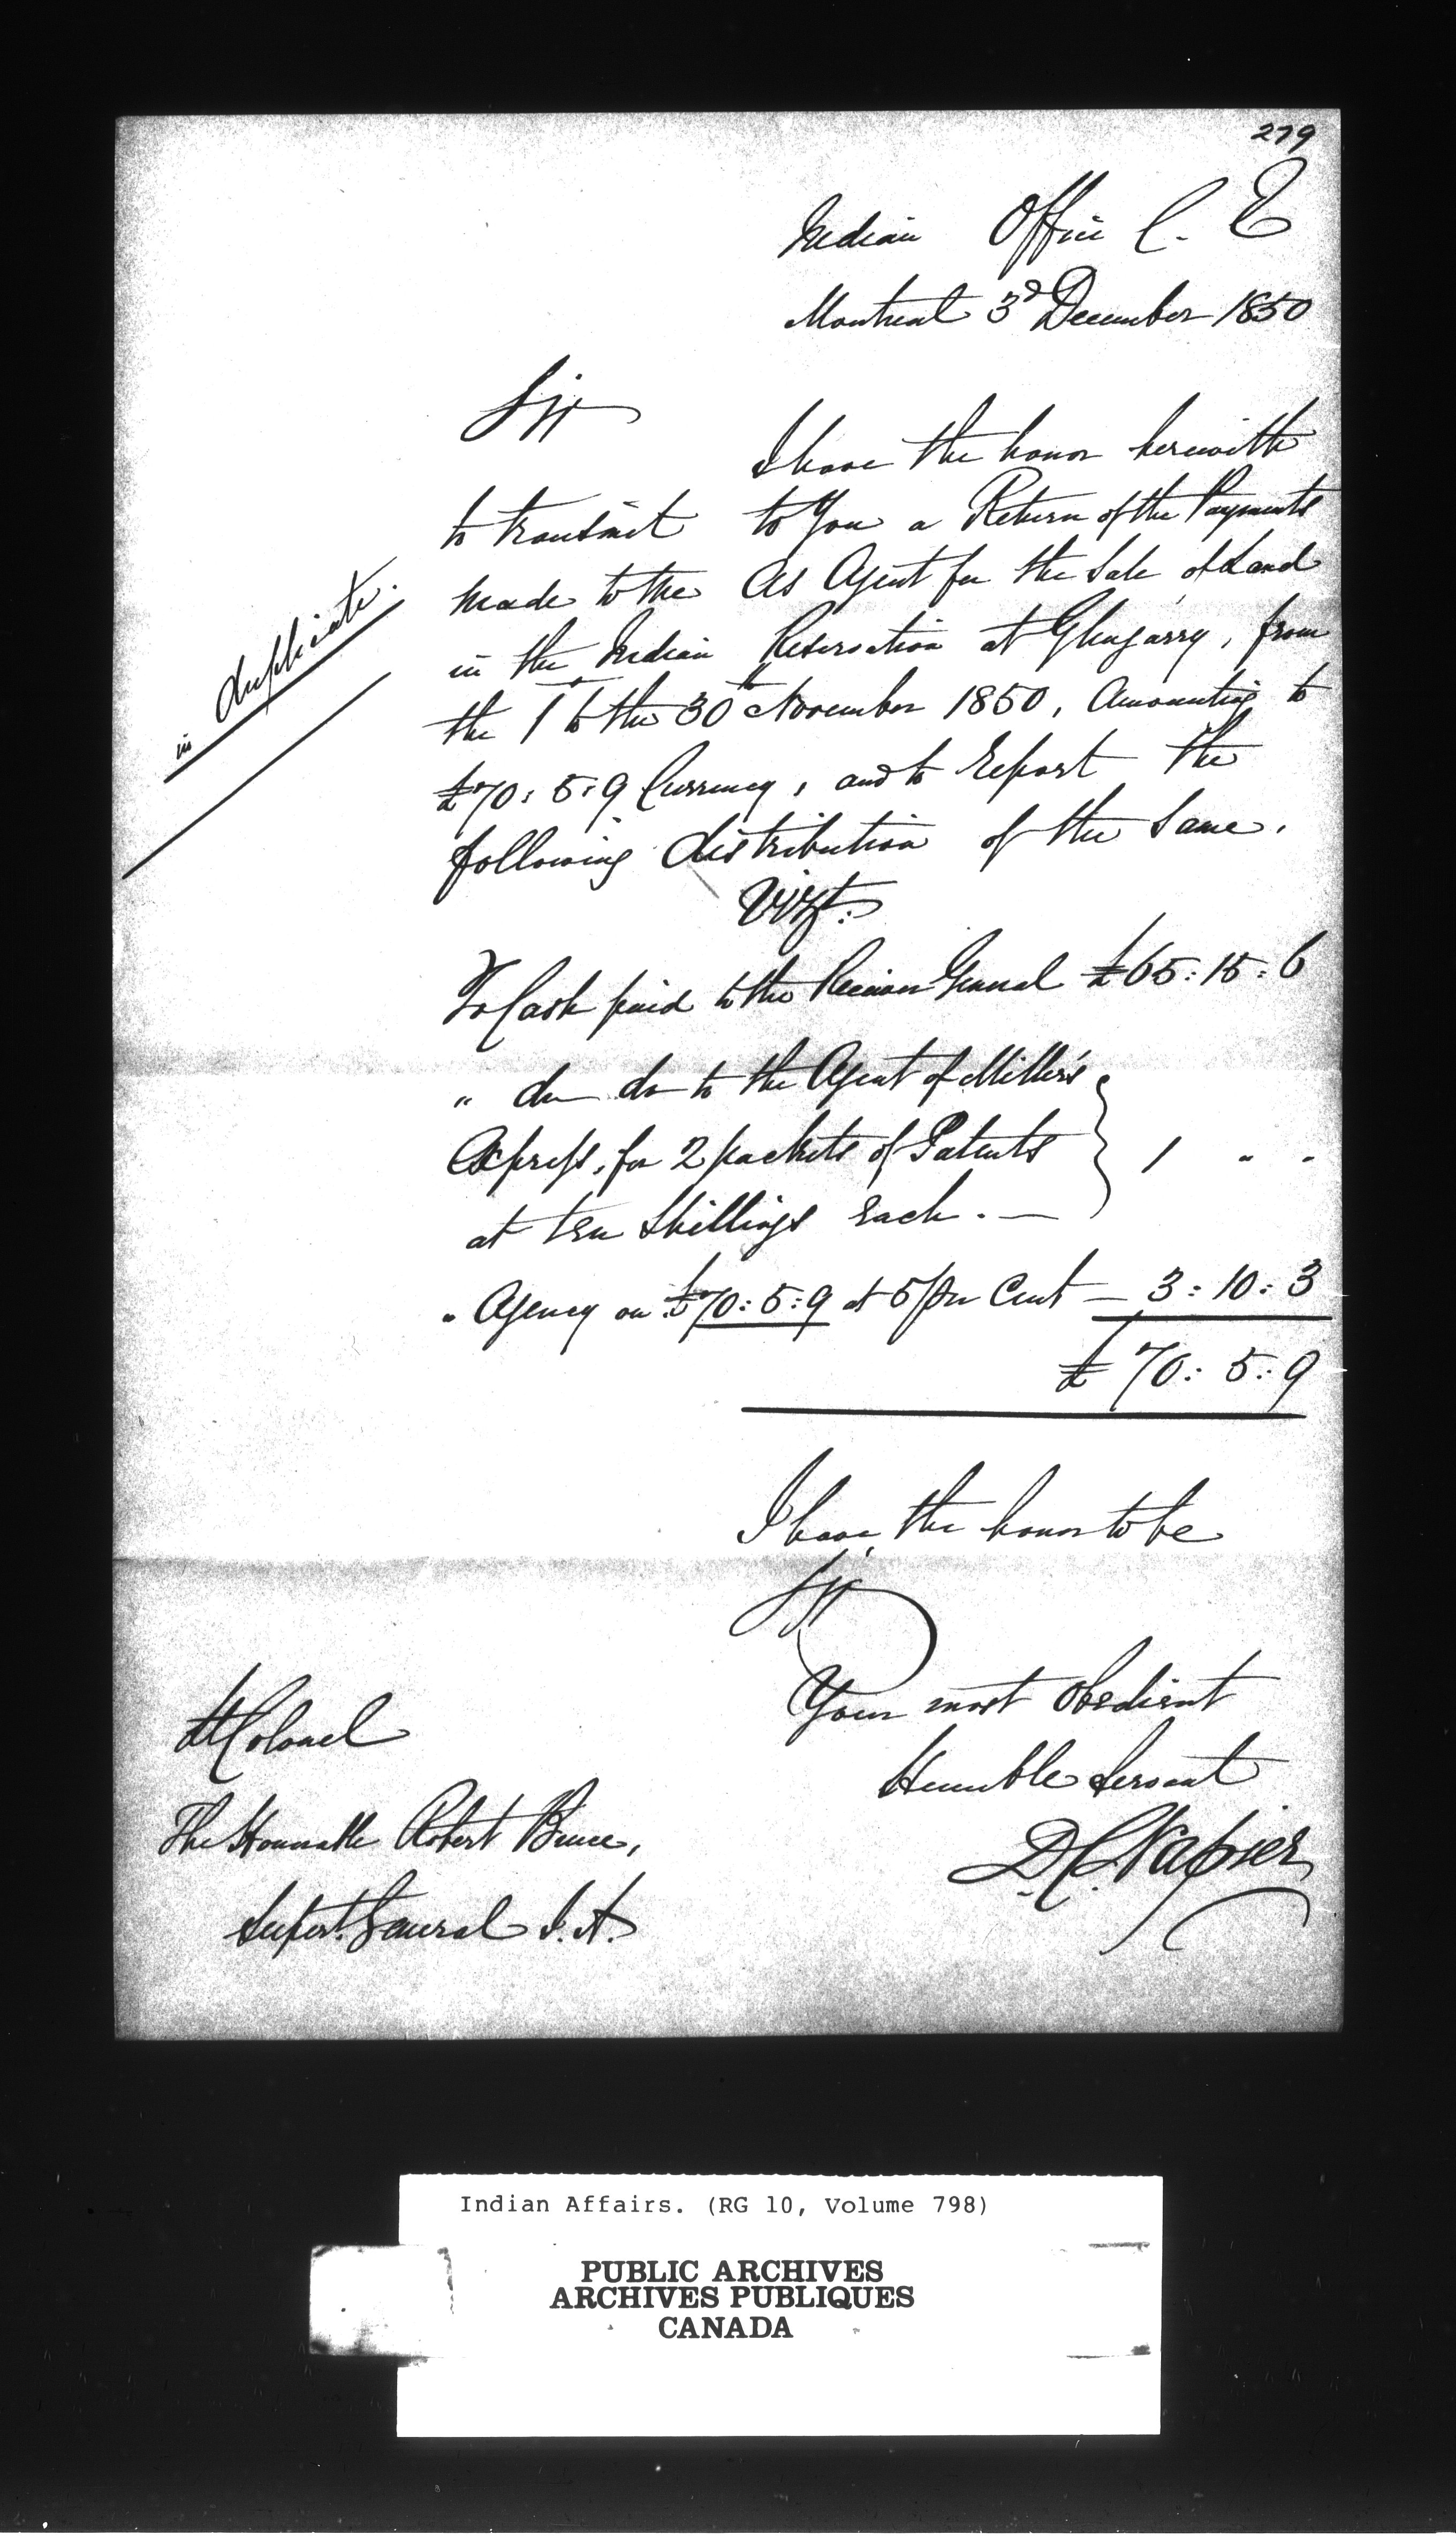 279
Indian Office C. E
Montreal 3d December 1850
Sir
I have the honor herewith
to transmit to You a Return of the Payments
made to the As Agent for the Sale of Land
in the Indian Reservation at Glengarry, from
the 1st to the 30th November 1850, Amounting to
£70: 5: 9 Currency, and to Report the
following distribution of the Same.
in duplicate.
Vizt:
To Cash paid to the Receiver General £65: 15: 6
" do do to the Agent of Miller's
Express, for 2 packets of Patents } 1 " "
at ten Shillings Each. —
" Agency on £70: 5: 9 at 5 per Cent — 3: 10: 3
£ 70: 5: 9
I have the honor to be
Sir
Your most Obedient
Humble Servant
D.C. Napier
Lt Colonel
The Honorable Robert Bruce,
Supert. General I.A.
Indian Affairs. (RG 10, Volume 798)
PUBLIC ARCHIVES
ARCHIVES PUBLIQUES
CANADA